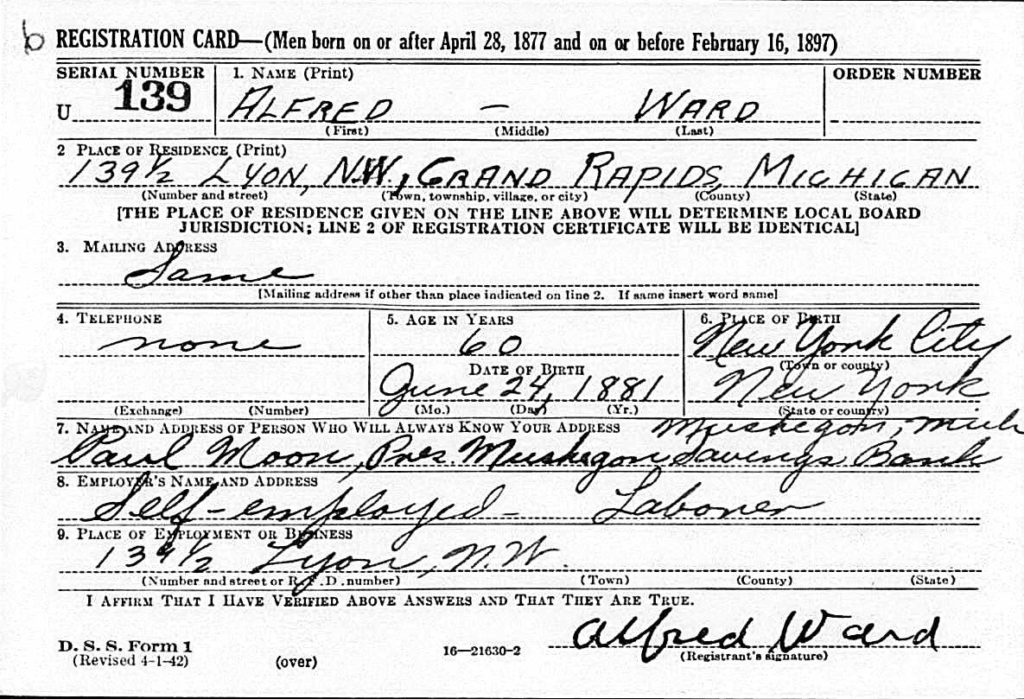 b REGISTRATION CARD—(Men born on or after April 28, 1877 and on or before February 16, 1897)
SERIAL NUMBER 1. NAME (Print) ORDER NUMBER
U 139 ALFRED — WARD
(First) (Middle) (Last)
2 PLACE OF RESIDENCE (Print)
139½ LYON, N.W., GRAND RAPIDS, MICHIGAN
(Number and street) (Town, township, village, or city) (County) (State)
[THE PLACE OF RESIDENCE GIVEN ON THE LINE ABOVE WILL DETERMINE LOCAL BOARD
JURISDICTION; LINE 2 OF REGISTRATION CERTIFICATE WILL BE IDENTICAL]
3. MAILING ADDRESS
Same
[Mailing address if other than place indicated on line 2. If same insert word same]
4. TELEPHONE 5. AGE IN YEARS 6. PLACE OF BIRTH
none 60 New York City
DATE OF BIRTH (Town or county)
June 24, 1881 New York
(Exchange) (Number) (Mo.) (Day) (Yr.) (State or country)
7. NAME AND ADDRESS OF PERSON WHO WILL ALWAYS KNOW YOUR ADDRESS Muskegon, Mich
Paul Moon, Pres. Muskegon Savings Bank
8. EMPLOYER'S NAME AND ADDRESS
Self-employed - Laborer
9. PLACE OF EMPLOYMENT OR BUSINESS
139½ Lyon, N.W.
(Number and street or R. F. D. number) (Town) (County) (State)
I AFFIRM THAT I HAVE VERIFIED ABOVE ANSWERS AND THAT THEY ARE TRUE.
Alfred Ward
D. S. S. Form 1
(Revised 4-1-42) (over) 16—21630-2 (Registrant's signature)